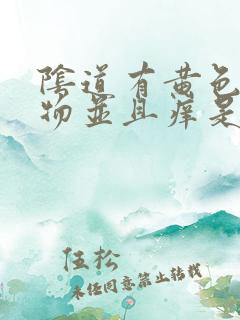 陰道有黄色
物並且痒是
伍松
未经同意禁止转载